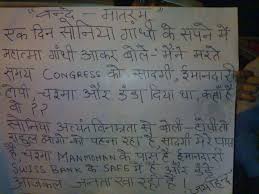 "वन्दे - मातरम्"
एक दिन सोनिया गाँधी के सपने में
महात्मा गाँधी आकर बोले- मैंने मरते
समय CONGRESS को सादगी, ईमानदारी
टोपी - चश्मा और डंडा दिया था, कहाँ है
वो ??
सोनिया अत्यंत विनम्रता से बोली- टोपी तो
राहुल गाँधी को पहना रखा है सादगी मेरे पास
है, चश्मा MANMOHAN के पास है ईमानदारी
SWISS BANK के SAFE में है, और डंडे
आजकल जनता खा रही है !